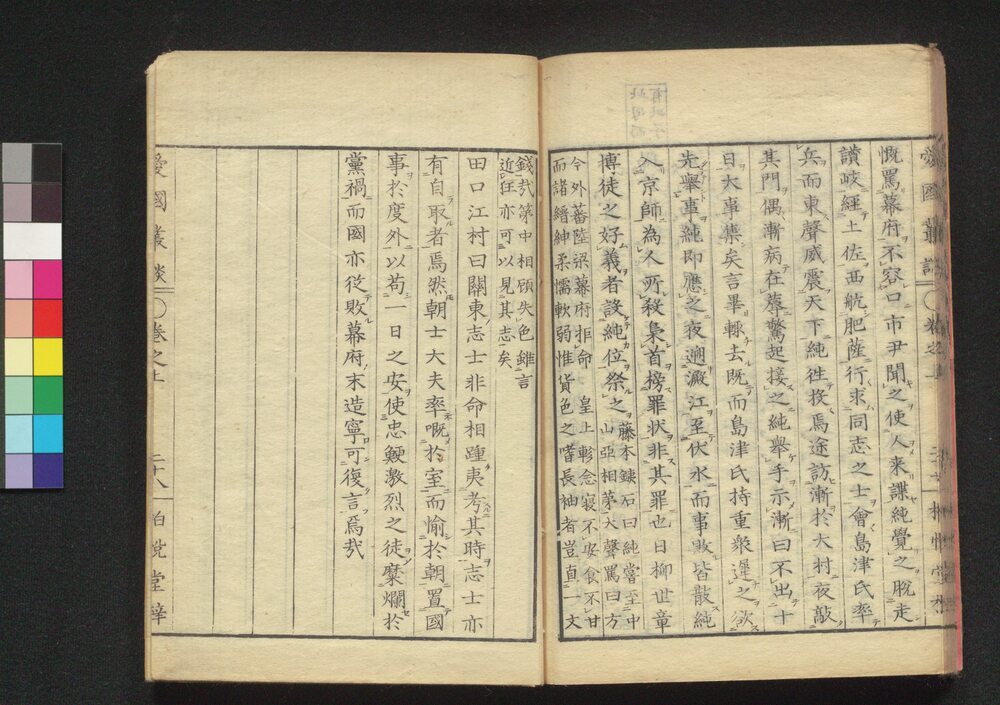 慨罵幕府不容口市尹聞之使人来諜純覺之脱走
讃岐經土佐西航肥薩行求同志之士會島津氏率
兵而東聲威震天下純徃投焉途訪漸於大村夜敲
其門偶漸病在蓐驚起接之純舉手示漸曰不出十
日大事集矣言畢輙去既而島津氏持重衆遲之欲
先舉事純即應之夜遡澱江至伏水而事敗皆散純
入京師為人所殺梟首榜罪状非其罪也日柳世章
博徒之好義者設純位祭之藤本鐵石曰純嘗至中
山亞相第大聲罵曰方
今外蕃陸梁幕府拒命　皇上軫念寝不安食不甘
而諸縉紳柔懦軟弱惟貨色之嗜長袖者豈直一文
錢哉第中相顧失色雖言
近狂亦可以見其志矣
田口江村曰關東志士非命相踵夷考其時志士亦
有自取者焉然朝士大夫率嘅於室而愉於朝置國
事於度外以苟一日之安使忠鯁激烈之徒糜爛於
黨禍而國亦從敗幕府末造寧可復言焉哉
愛國叢談
卷之上
二十八
柏悦堂梓